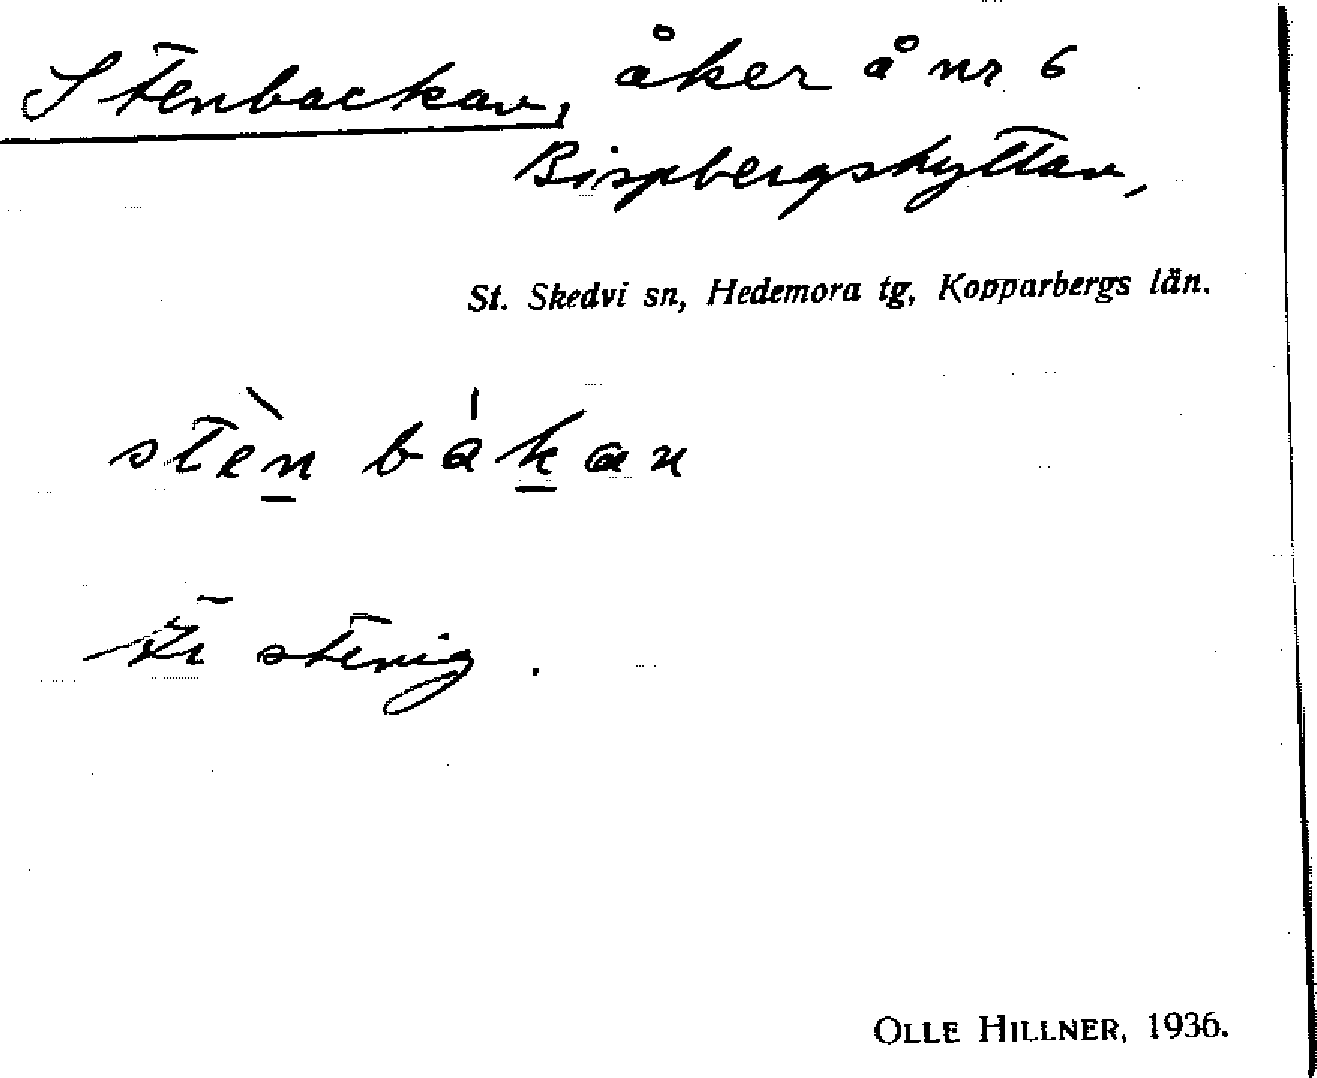 Stenbackan, åker å nr 6
Bispbergshyttan,
St. Skedvi sn, Hedemora tg, Kopparbergs län.
stèn bákan
Är stenig.
OLLE HILLNER, 1936.